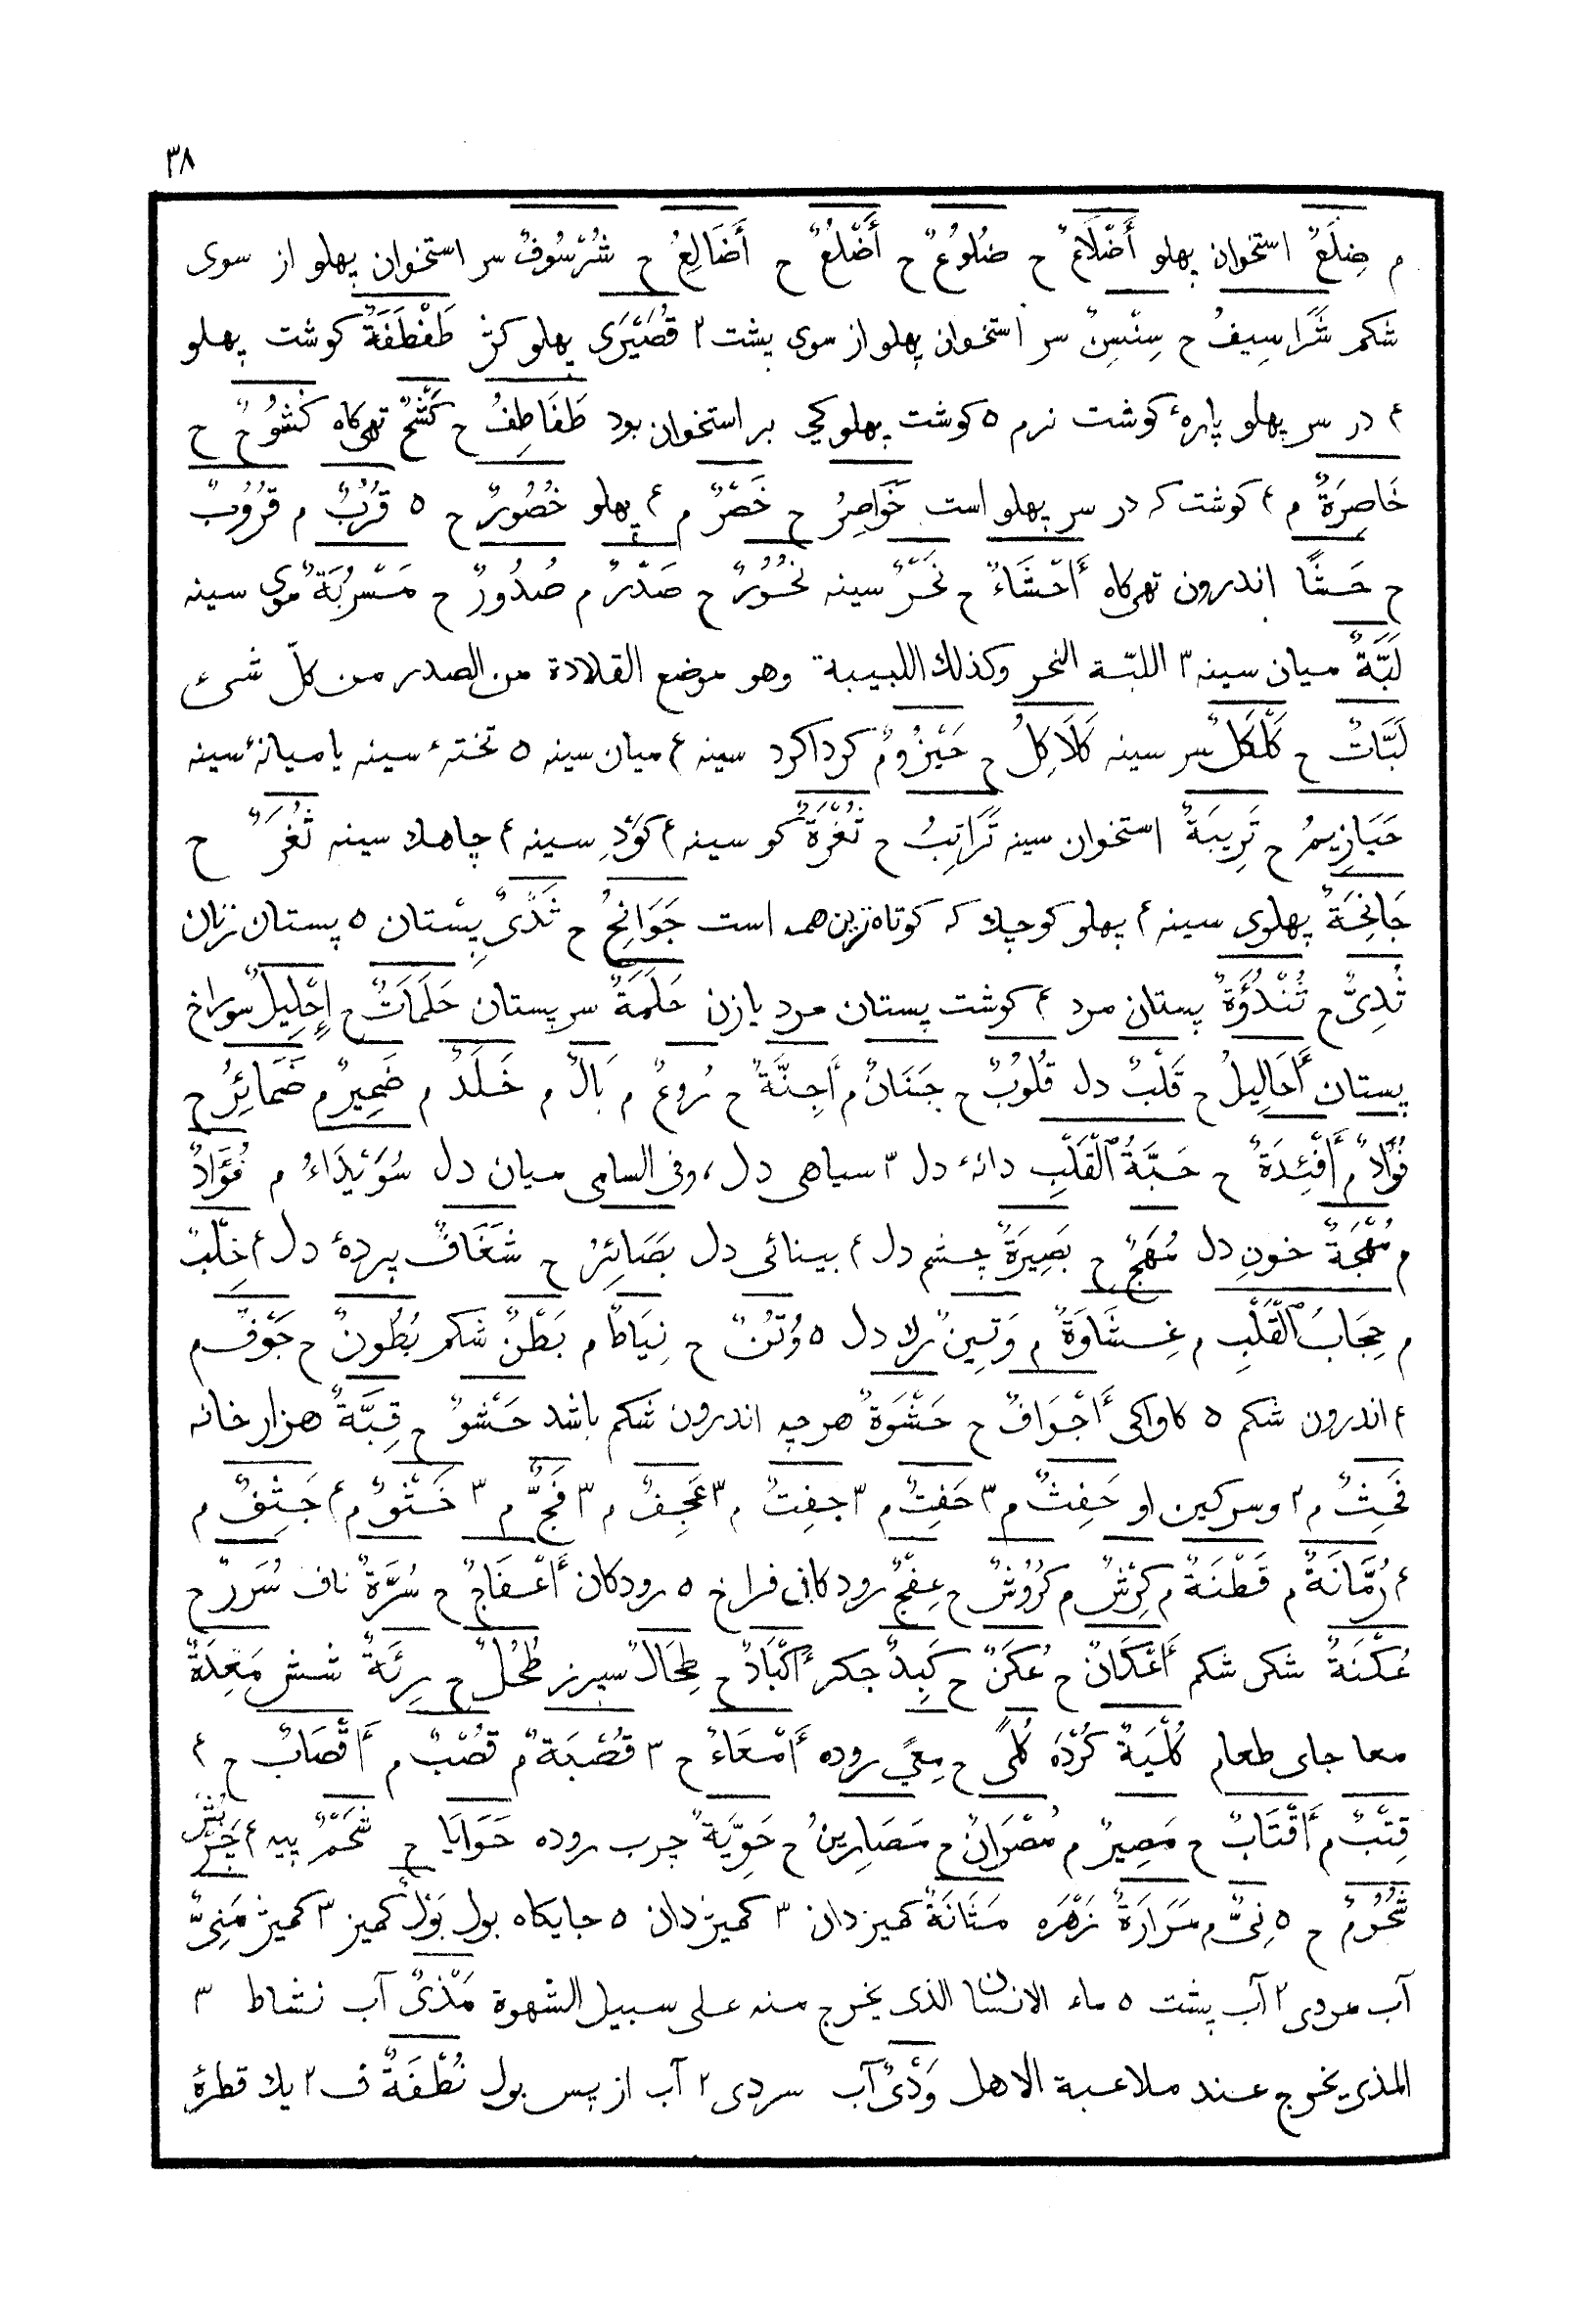 ٣٨
م ضِلَعٌ استخوان پهلو أَضْلَاعٌ ح ضُلُوعٌ ح أَضْلُعٌ ح أَضَالِعُ ح شُرْسُوفٌ سر استخوان پهلو از سوی
شكم شَرَاسِيفُ ح سِنْسِنٌ سر استخوان پهلو از سوی پشت ٢ قُصَيْرَى پهلو كژ طَفْطَفَةٌ كوشت پهلو
۴ در سر پهلو پارهٔ كوشت نرم ٥ كوشت پهلو كی بر استخوان بود طَفَاطِفُ ح كَشْحٌ تهی‌كاه كُشُوحٌ ح
خَاصِرَةٌ م ۴ كوشت كه در سر پهلو است خَوَاصِرُ ح خَصْرٌ م ۴ پهلو خُصُورٌ ح ٥ قُرُبٌ م قُرُوبٌ
ح حَشًا اندرون تهی‌كاه أَحْشَاءٌ ح نَحْرٌ سينه نُحُورٌ ح صَدْرٌ م صُدُورٌ ح مَسْرُبَةٌ موی سينه
لَبَّةٌ ميان سينه ٣ اللبّة النحر وكذلك اللبيبة وهو موضع القلادة من الصدر من كلّ شیء
لَبَّاتٌ ح كَلْكَلٌ سر سينه كَلَاكِلُ ح حَيْزُومٌ كرداكرد سينه ۴ ميان سينه ٥ تختهٔ سينه يا ميانهٔ سينه
حَيَازِيمُ ح تَرِيبَةٌ استخوان سينه تَرَائِبُ ح ثُغْرَةٌ كو سينه ۴ كَوْدِ سينه ۴ چاهك سينه ثُغَرٌ ح
جَانِحَةٌ پهلوی سينه ۴ پهلو كوچك كه كوتاه‌ترين همه است جَوَانِحُ ح ثَدْیٌ پستان ٥ پستان زنان
ثُدِیٌّ ح ثُنْدُؤَةٌ پستان مرد ۴ كوشت پستان مرد يا زن حَلَمَةٌ سر پستان حَلَمَاتٌ ح إِحْلِيلٌ سوراخ
پستان أَحَالِيلُ ح قَلْبٌ دل قُلُوبٌ ح جَنَانٌ م أَجِنَّةٌ ح رُوعٌ م بَالٌ م خَلَدٌ م ضَمِيرٌ م ضَمَائِرُ ح
فُؤَادٌ م أَفْئِدَةٌ ح حَبَّةُ ٱلْقَلْبِ دانهٔ دل ٣ سياهی دل، وفی السامی ميان دل سُوَيْدَاءُ م فُؤَادٌ
م مُهْجَةٌ خونِ دل مُهَجٌ ح بَصِيرَةٌ چشم دل ۴ بينائی دل بَصَائِرُ ح شَغَافٌ پردهٔ دل ۴ خِلْبٌ
م حِجَابُ ٱلْقَلْبِ م غِشَاوَةٌ م وَتِينٌ رك دل ٥ وُتُنٌ ح نِيَاطٌ م بَطْنٌ شكم بُطُونٌ ح جَوْفٌ م
۴ اندرون شكم ٥ كاواكی أَجْوَافٌ ح حَشْوَةٌ هر چه اندرون شكم باشد حَشْوٌ ح قِبَّةٌ هزار خانه
فَحِثٌ م ٢ و سركين او حَفِثٌ م ٣ حَفِتٌ م ٣ جِفِتٌ م ٣ عَجِفٌ م ٣ فَجٌّ م ٣ خَثْوٌ م ۴ جَثِفٌ م
۴ رُمَّانَةٌ م قَطْنَةٌ م كِرْشٌ م كُرُوشٌ ح عِفْجٌ رودكانی فراخ ٥ رودكان أَعْفَاجٌ ح سُرَّةٌ ناف سُرَرٌ ح
عُكْنَةٌ شكن شكم أَعْكَانٌ ح عُكَنٌ ح كَبِدٌ جكر أَكْبَادٌ ح طِحَالٌ سپرز طُحُلٌ ح رِئَةٌ شش مَعِدَةٌ
معا جای طعام كُلْيَةٌ كُرْدَه كُلًی ح مِعًی روده أَمْعَاءٌ ح ٣ قُصْبَةٌ م قُصْبٌ م أَقْصَابٌ ح ۴
قِتْبٌ م أَقْتَابٌ ح مَصِيرٌ م مُصْرَانٌ ح مَصَارِينُ ح حَوِيَّةٌ چرب روده حَوَايَا ح شَحْمٌ پيه ۴
شُحُومٌ ح ٥ نِیٌّ م مَرَارَةٌ زَهْرَه مَثَانَةٌ كميزدان ٣ كميژدان ٥ جايكاه بول بَوْلٌ كميز ٣ كميژ مَنِیٌّ
آب مردی ٢ آب پشت ٥ ماء الانسان الذی يخرج منه علی سبيل الشهوة مَذْیٌ آب نشاط ٣
المذی يخرج عند ملاعبة الاهل وَدْیٌ آب سردی ٢ آب از پس بول نُطْفَةٌ ف ٢ يك قطرهٔ